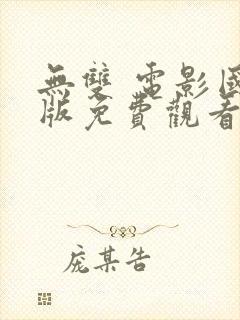 無雙 電影國
版免費觀看
龐某告